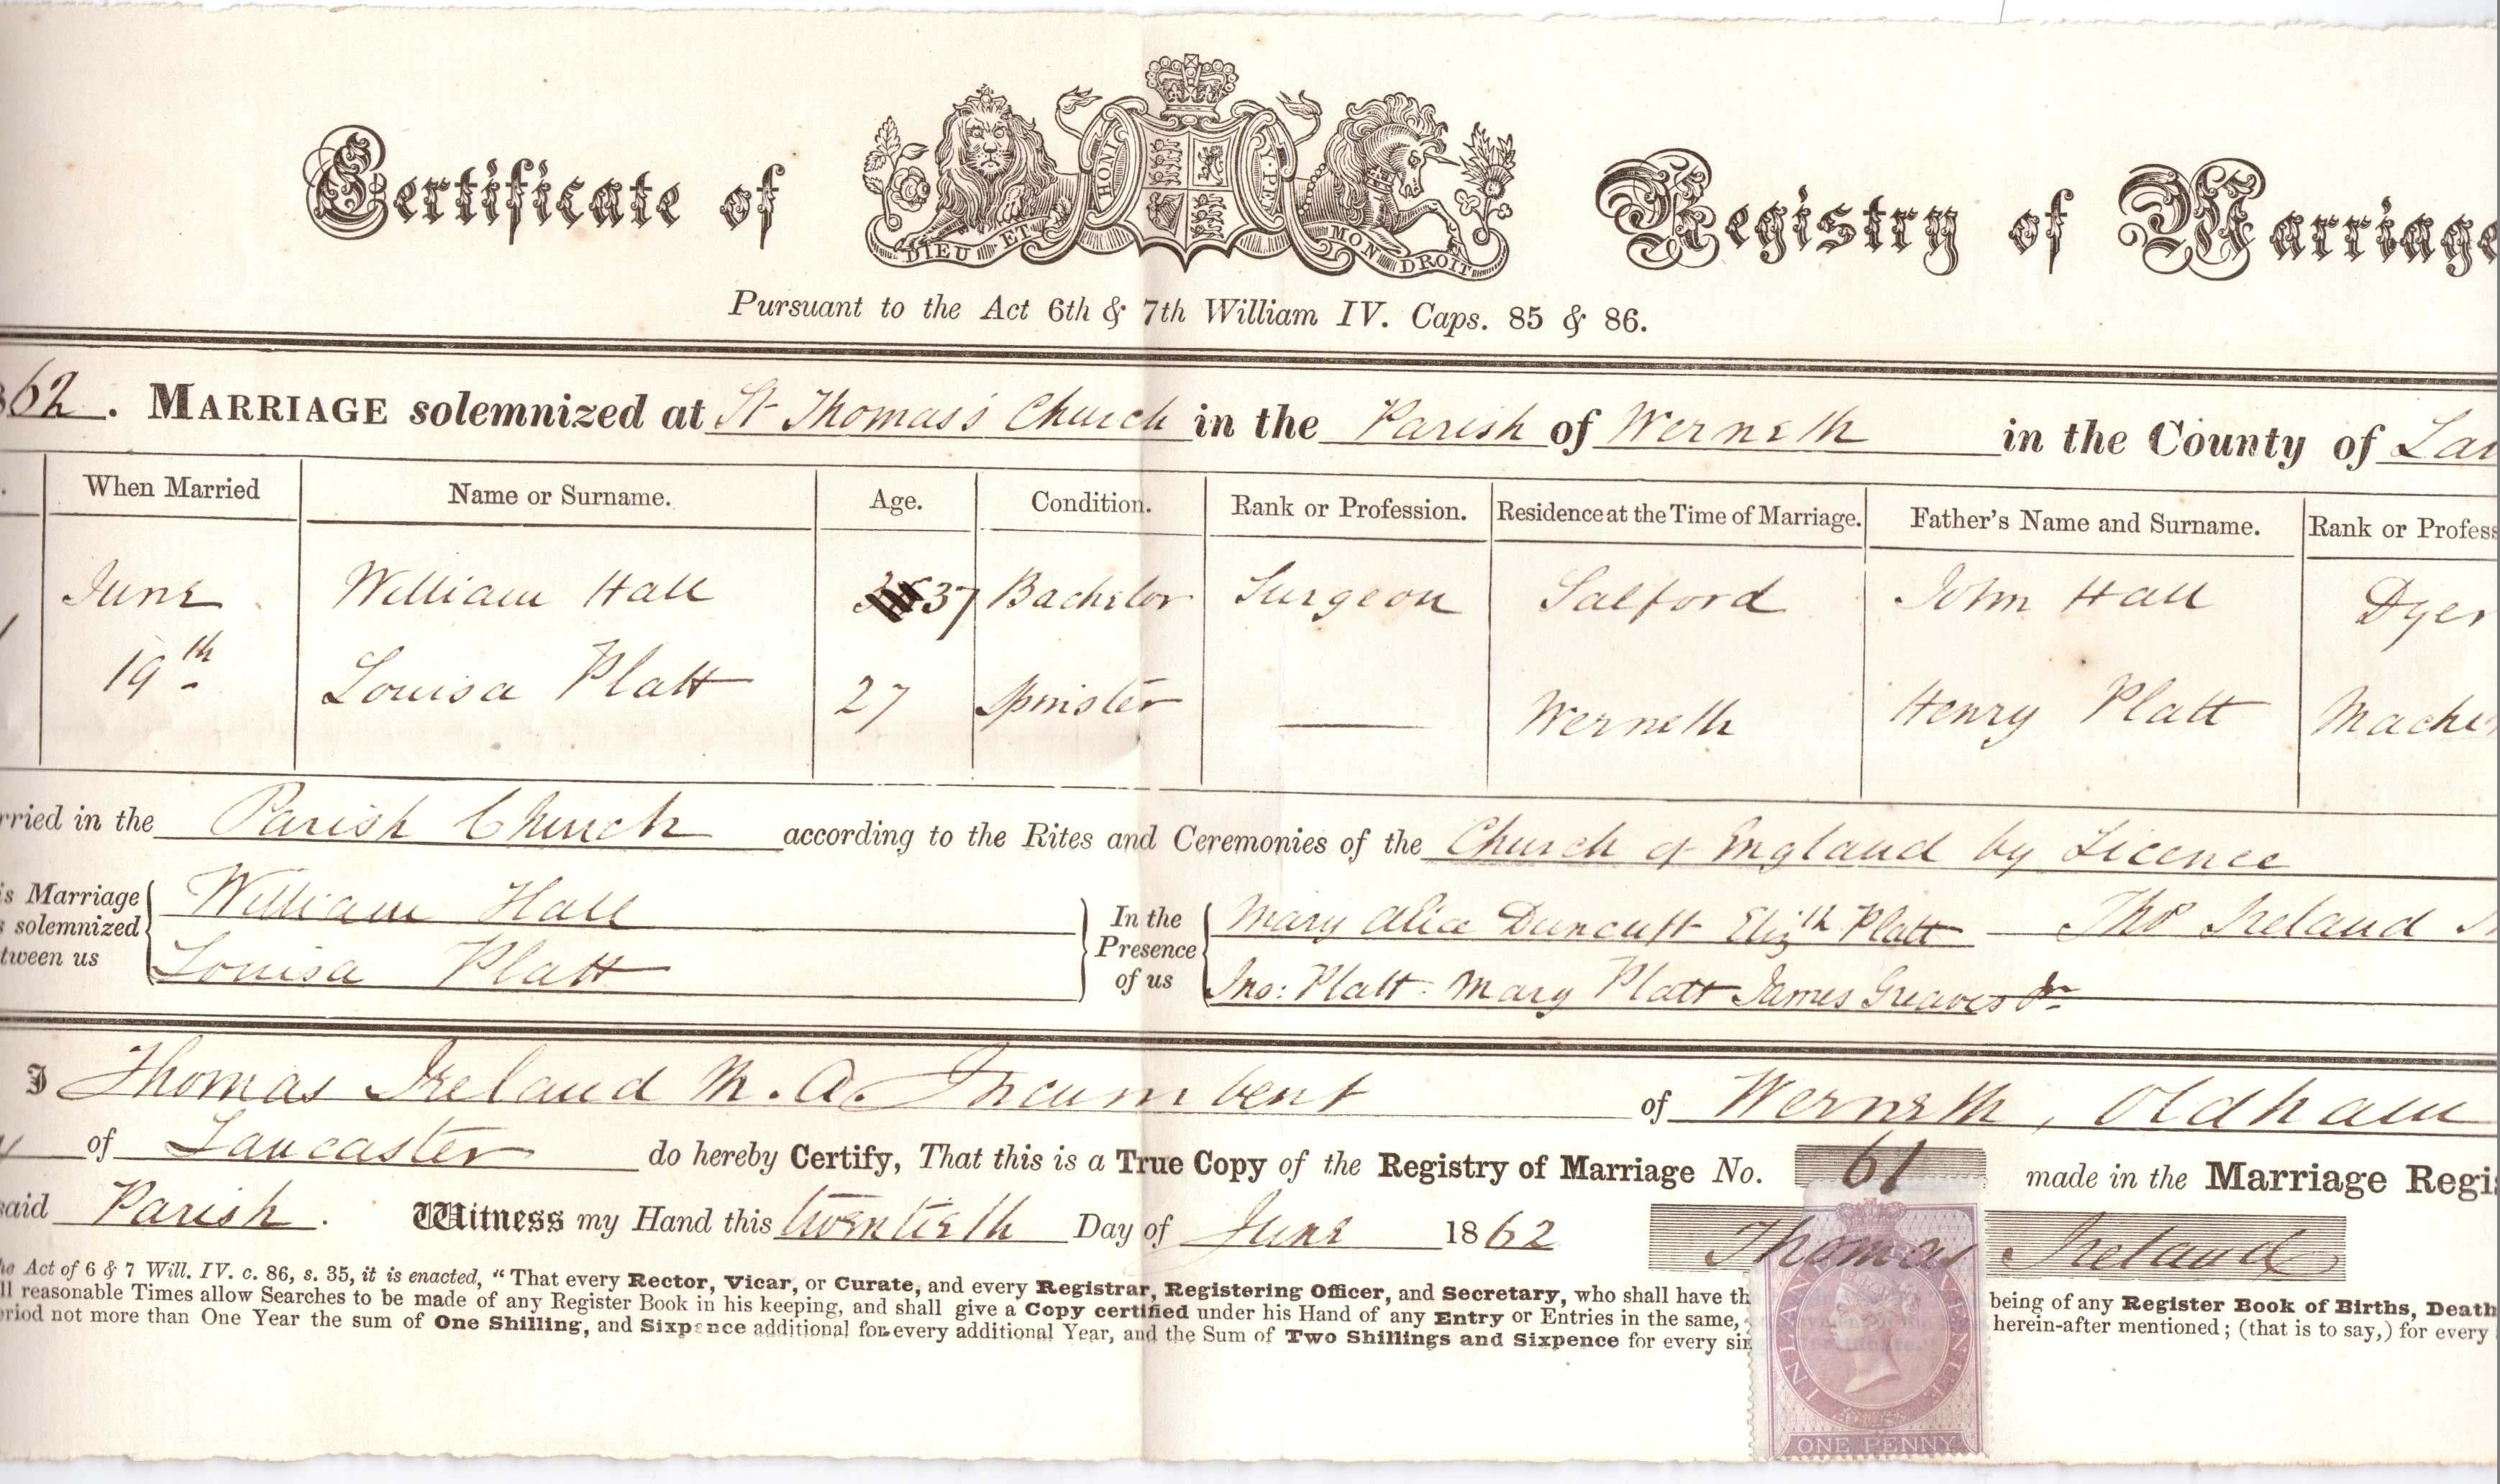 Certificate of Registry of Marriage
HONI Y PEN
DIEU ET MON DROIT
Pursuant to the Act 6th & 7th William IV. Caps. 85 & 86.
62. MARRIAGE solemnized at St Thomas's Church in the Parish of Werneth in the County of Lan
When Married Name or Surname. Age. Condition. Rank or Profession. Residence at the Time of Marriage. Father's Name and Surname. Rank or Profess
June William Hall 37 Bachelor Surgeon Salford John Hall Dyer
19th Louisa Platt 27 Spinster Werneth Henry Platt Machi
rried in the Parish Church according to the Rites and Ceremonies of the Church of England by Licence
is Marriage
s solemnized
tween us
William Hall
Louisa Platt
In the
Presence
of us
Mary Alice Duncuft Elizth Platt — Thos Ireland
Jno: Platt. Mary Platt James Greaves Jr
I Thomas Ireland M.A. Incumbent of Werneth, Oldham
of Lancaster do hereby Certify, That this is a True Copy of the Registry of Marriage No. 61 made in the Marriage Regis
said Parish. Witness my Hand this twentieth Day of June 1862 Thomas Ireland
he Act of 6 & 7 Will. IV. c. 86, s. 35, it is enacted, "That every Rector, Vicar, or Curate, and every Registrar, Registering Officer, and Secretary, who shall have th being of any Register Book of Births, Death
ll reasonable Times allow Searches to be made of any Register Book in his keeping, and shall give a Copy certified under his Hand of any Entry or Entries in the same, herein-after mentioned; (that is to say,) for every
eriod not more than One Year the sum of One Shilling, and Sixpence additional for every additional Year, and the Sum of Two Shillings and Sixpence for every sin
INLAND REVENUE
ONE PENNY